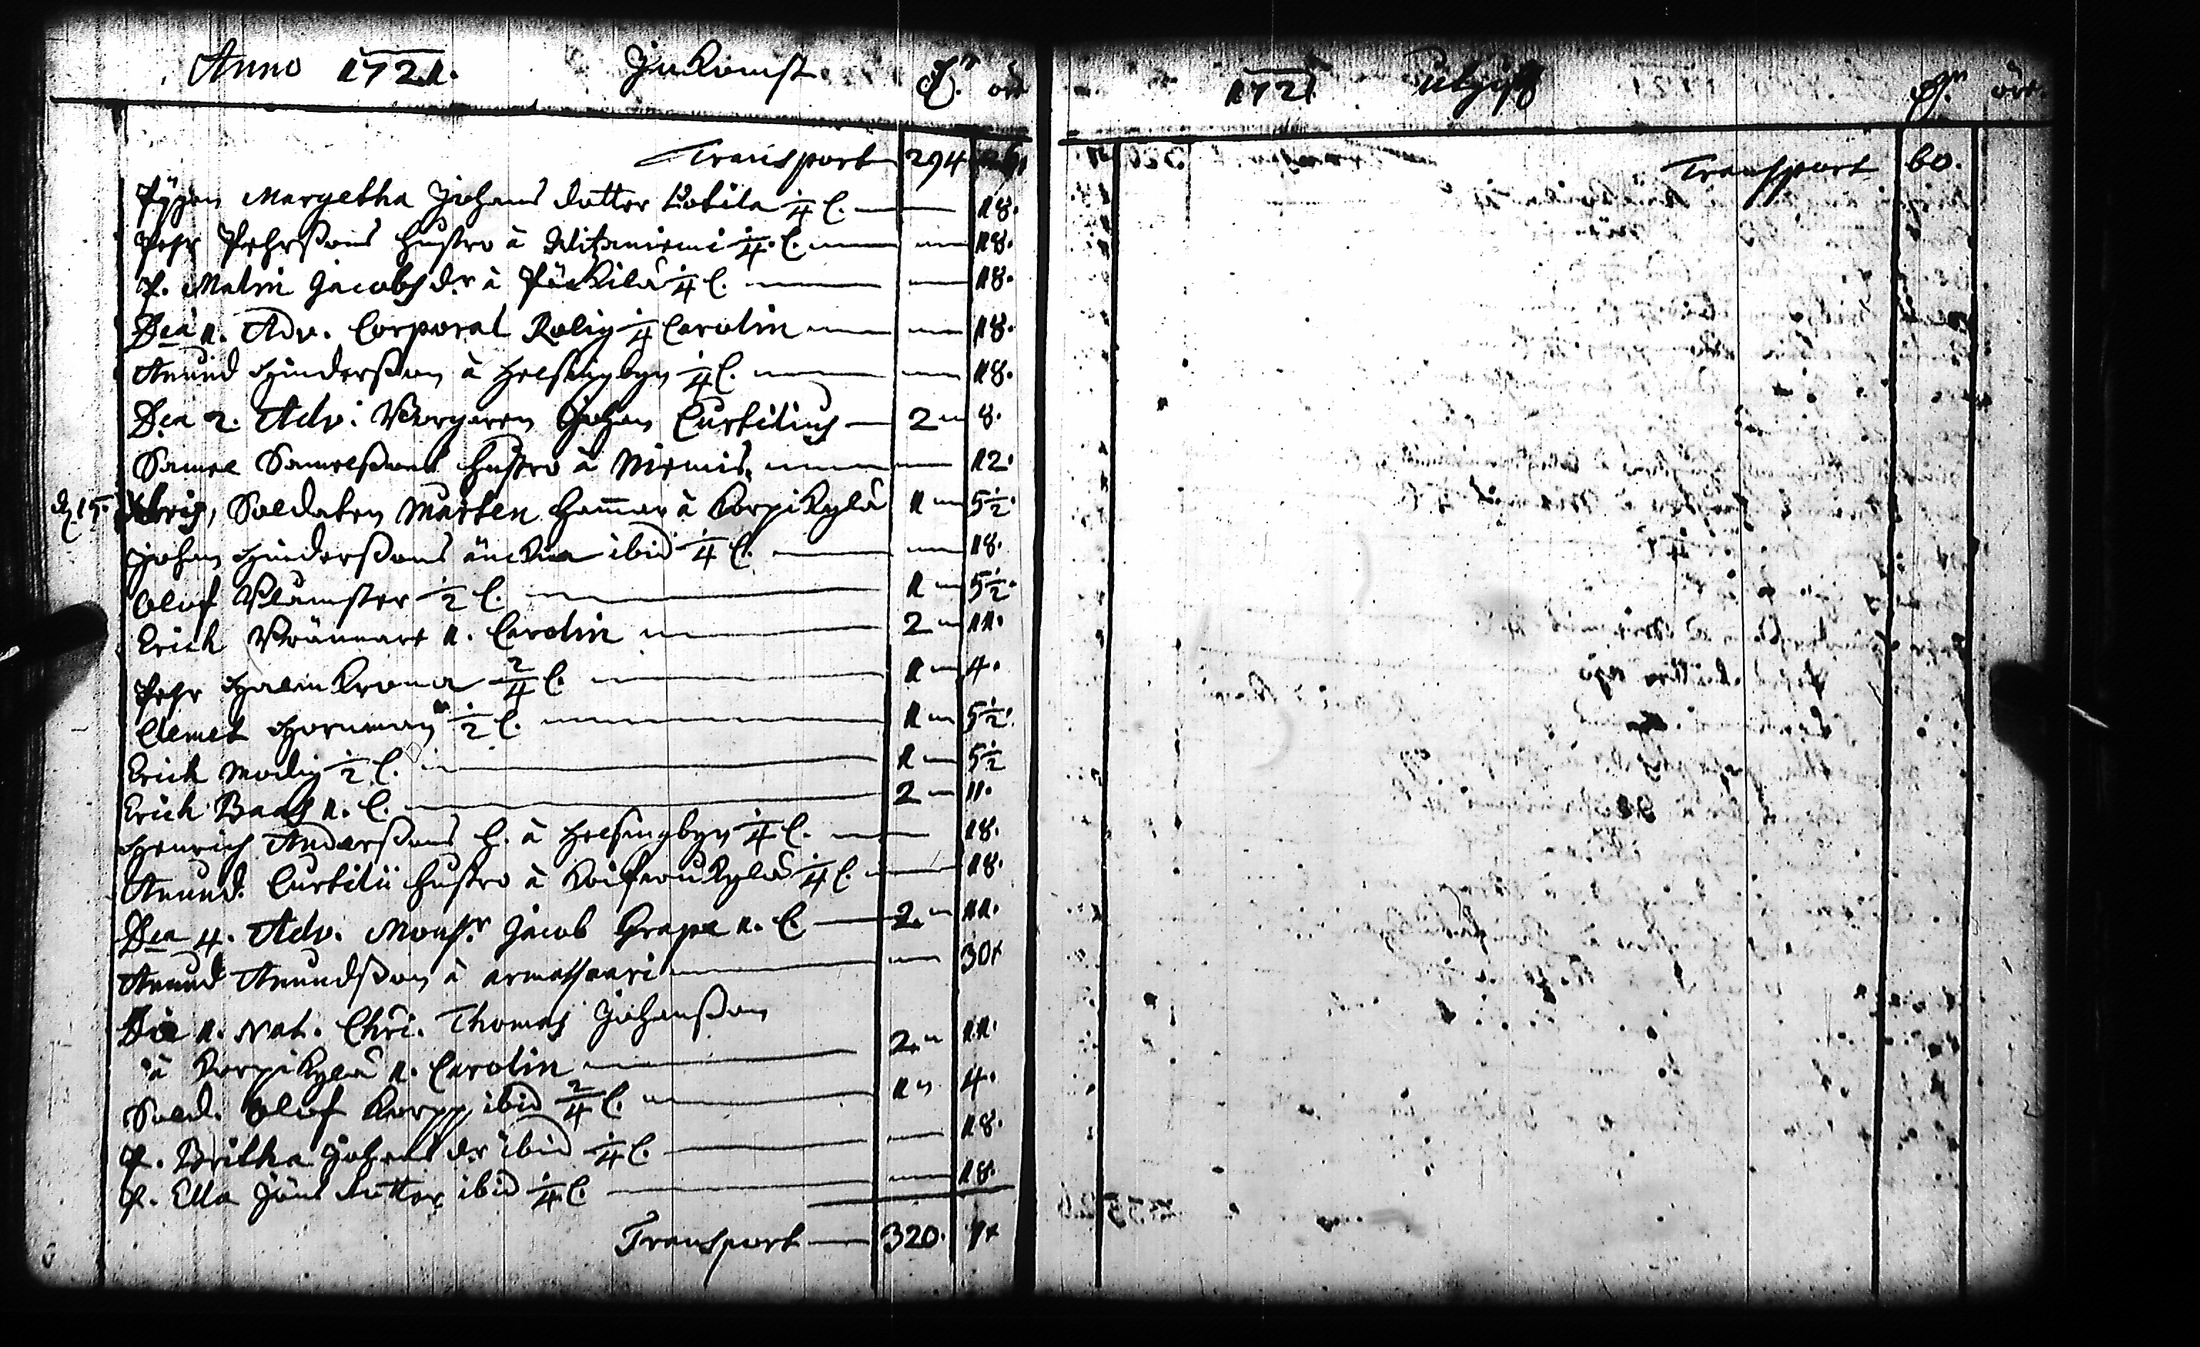 Anno 1721. Inkomst
Transport 294
Pijgan Margetha Johans dotter Kokila 1/4 C. — 18.
Pehr Pehrßons hustro à Witzaniemi 1/4. C. — 18.
P. Malin Jacobs dr à Päckilä 1/4 C. — 18.
Dca 1. Adv. Corporal Rolig 1/4 Carolin — 18.
Anund Hinderßon à Helsingbyn 1/4 C. — 18.
Dca 2. Adv: Borgaren Johan Curtilius — 2 — 8.
Samel Samelßons hustro à Niemis. — 12.
d. 15. Xbris, Soldaten Mårten Hammar à Korpikylä 1 — 5 1/2.
Johan Hinderßons änckia ibid 1/4 C. — 18.
Olof Blämster 1/2 C. — 1 — 5 1/2.
Erich Brännare 1. Carolin — 2 — 11.
Pehr Palmkrona 2/4 C. — 1 — 4.
Clemet Hornman 1/2 C. — 1 — 5 1/2.
Erich Modig 1/2 C. — 1 — 5 1/2
Erich Baas 1. C. — 2 — 11.
Henrich Anderßons h. à Helsingbyn 1/4 C. — 18.
Anund. Curtilii hustro à Koifwukylä 1/4 C — 18.
Dca 4. Adv. Monsr Jacob Grape 1. C — 2 — 11.
Anund Anundßon à armassaari — 30
Die 1. Nat. Chri. Thomas Johanßon
à Korpikylä 1. Carolin — 2 — 11.
Sold. Olof Korpp ibid 2/4 C. — 1 — 4.
P. Britha Johans dr ibid 1/4 C. — 18.
P. Ella Jöns dotter ibid 1/4 C. — 18.
Transport — 320.
1721 Utgift öre.
Transport 60.